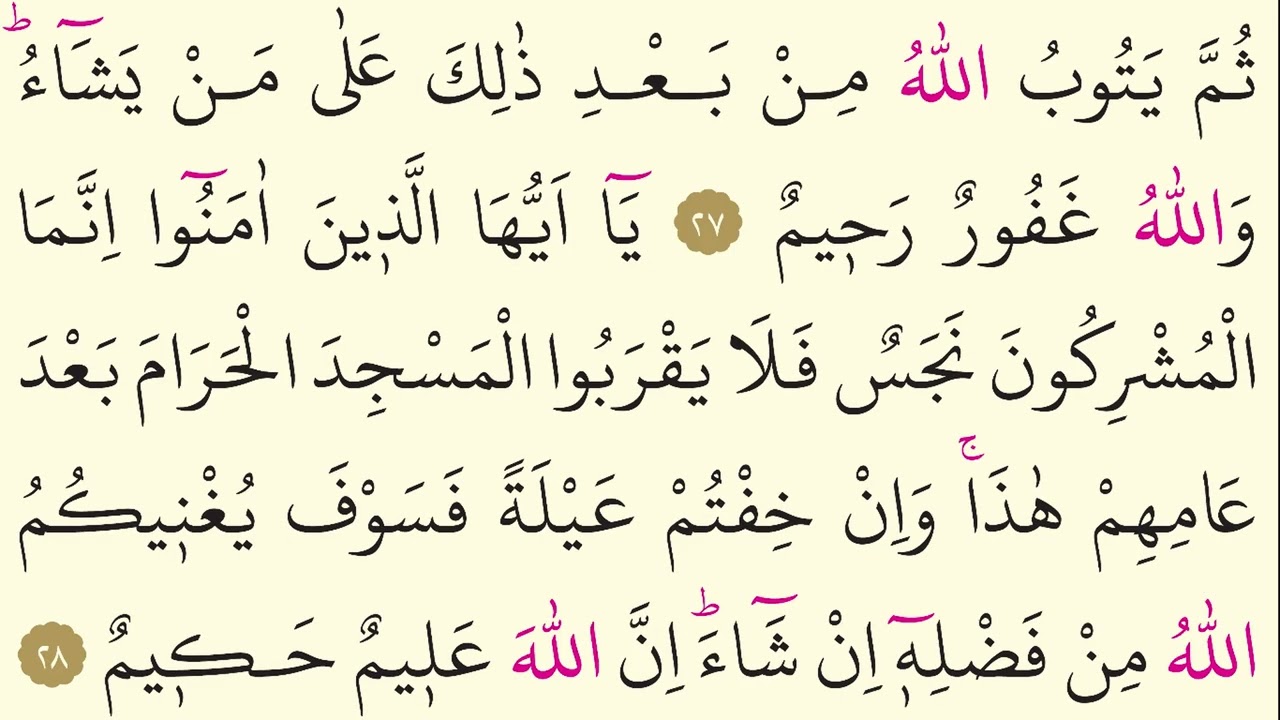 ثُمَّ يَتُوبُ اللّٰهُ مِنْ بَعْدِ ذٰلِكَ عَلٰى مَنْ يَشَٓاءُۜ
وَاللّٰهُ غَفُورٌ رَح۪يمٌ ﴿٢٧﴾ يَٓا اَيُّهَا الَّذ۪ينَ اٰمَنُٓوا اِنَّمَا
الْمُشْرِكُونَ نَجَسٌ فَلَا يَقْرَبُوا الْمَسْجِدَ الْحَرَامَ بَعْدَ
عَامِهِمْ هٰذَاۚ وَاِنْ خِفْتُمْ عَيْلَةً فَسَوْفَ يُغْن۪يكُمُ
اللّٰهُ مِنْ فَضْلِه۪ٓ اِنْ شَٓاءَۜ اِنَّ اللّٰهَ عَل۪يمٌ حَك۪يمٌ ﴿٢٨﴾